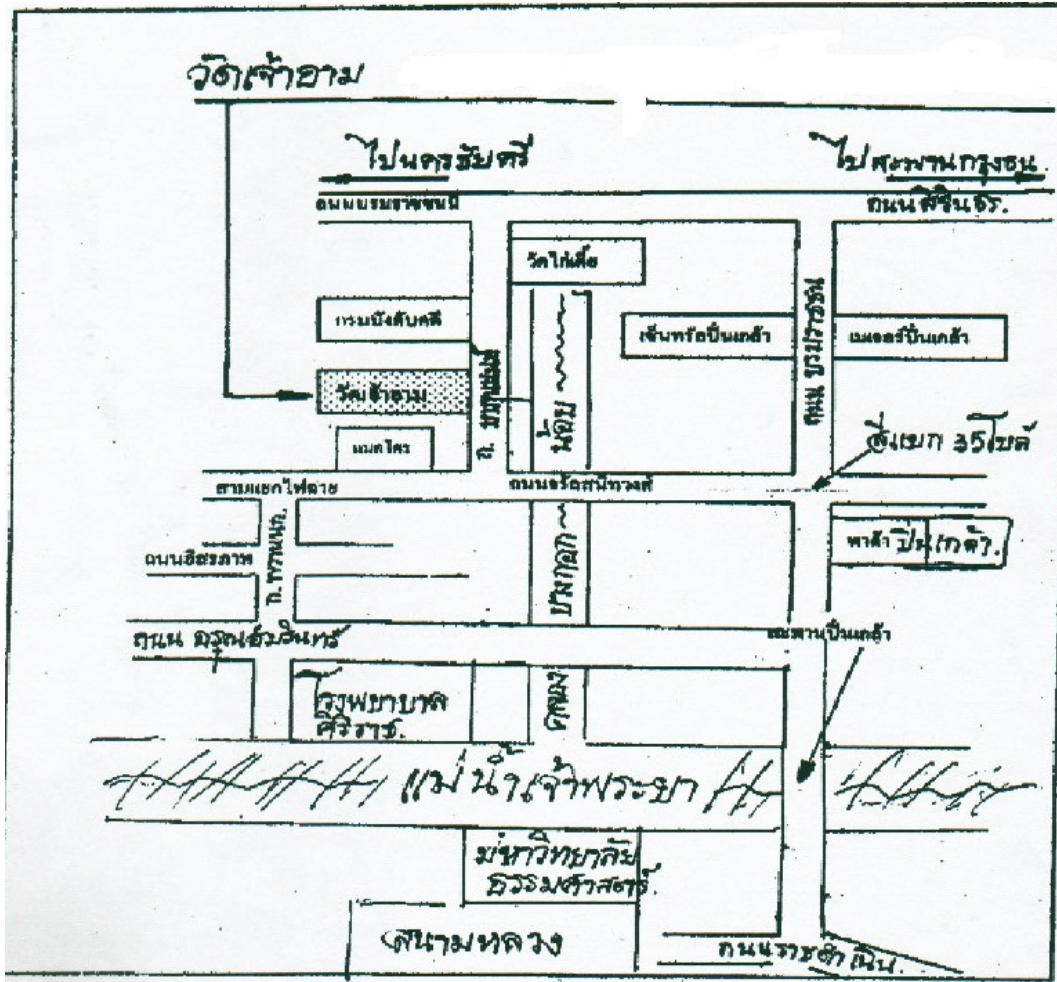 วัดเจ้าอาม
ไปนครชัยศรี
ไปสะพานกรุงธน
ถนนบรมราชชนนี
ถนนสิรินธร.
วัดไก่เตี้ย
กรมบังคับคดี
เซ็นทรัลปิ่นเกล้า
ถนน บรมราชชนนี
เมเจอร์ปิ่นเกล้า
วัดเจ้าอาม
ถ. บางขุนนนท์
น้อย
แมคโคร
สี่แยก 35โบล์
สามแยกไฟฉาย
ถนนจรัลสนิทวงศ์
พาต้า ปิ่นเกล้า.
ถนนอิสรภาพ
ถ. พรานนก
บางกอก
ถนน อรุณอัมรินทร์
สะพานปิ่นเกล้า
โรงพยาบาล
ศิริราช.
คลอง
แม่น้ำเจ้าพระยา
มหาวิทยาลัย
ธรรมศาสตร์
สนามหลวง
ถนนราชดำเนิน.